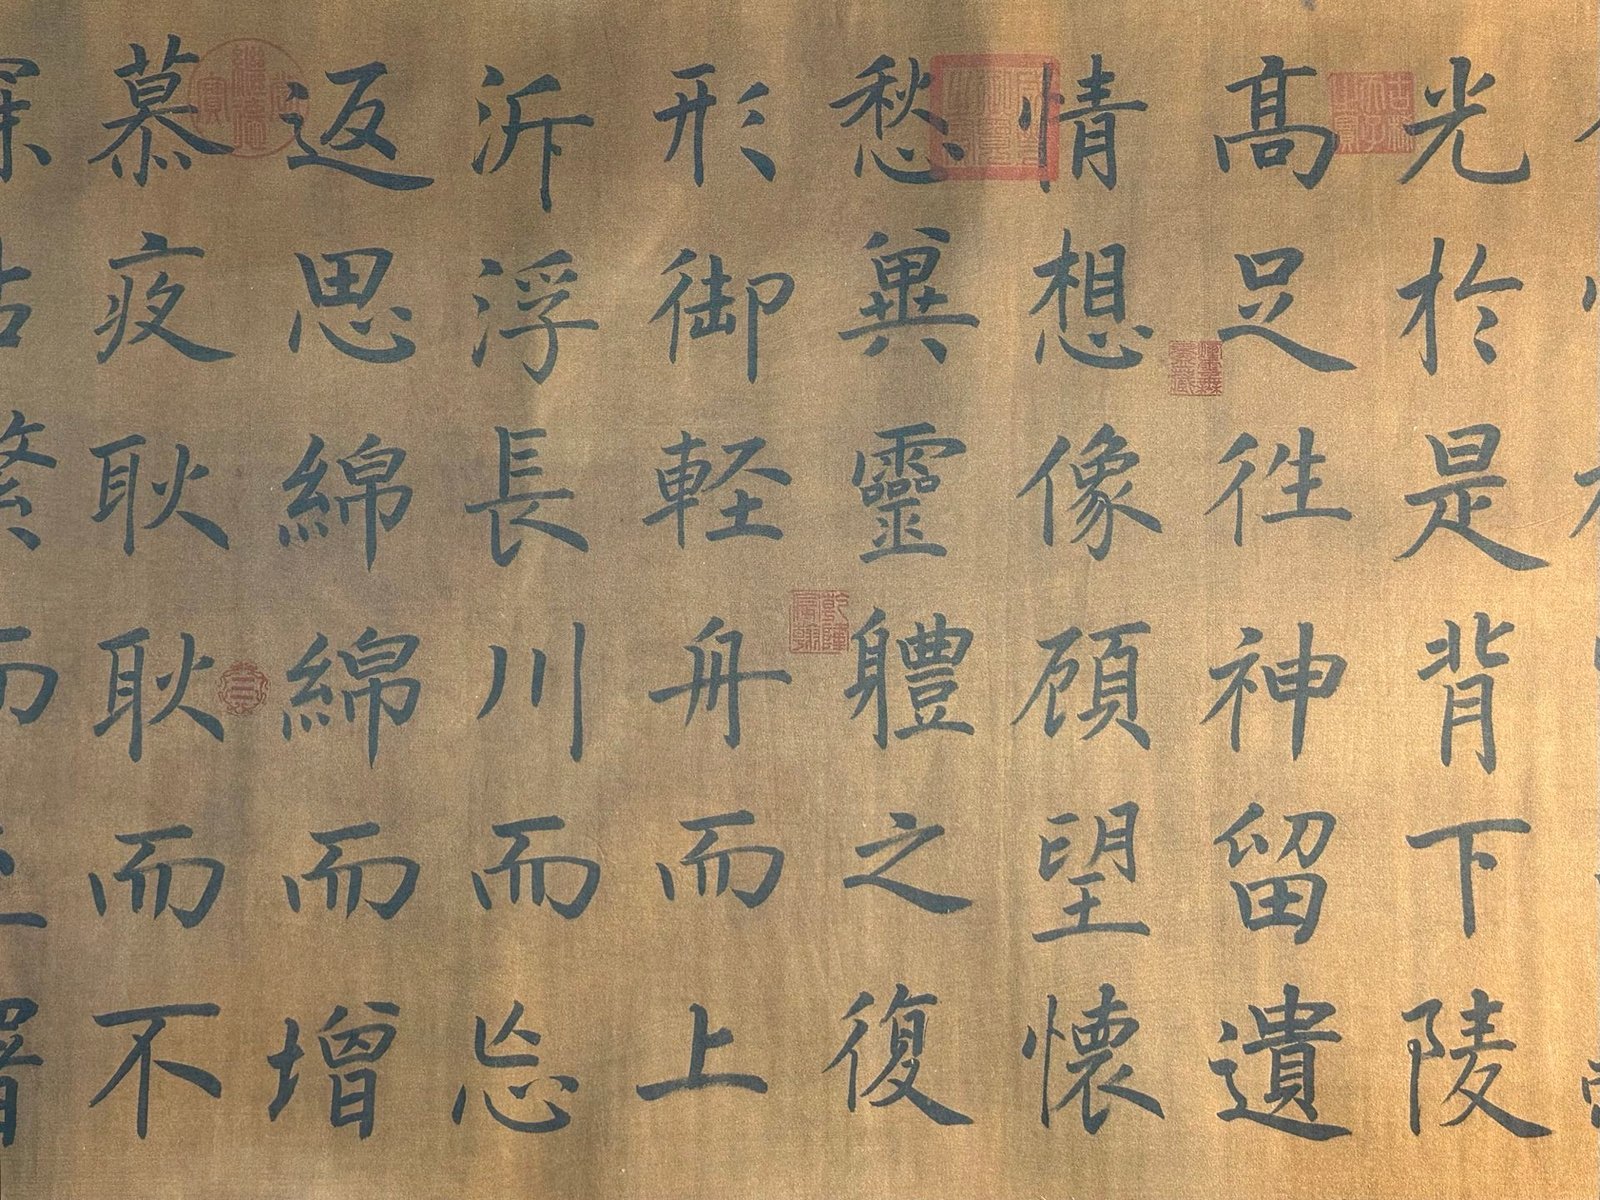 光於是背下陵
髙足徃神留遺
情想像頋望懷
愁兾靈軆之復
形御軽舟而上
泝浮長川而忘
返思綿綿而増
慕夜耿耿而不